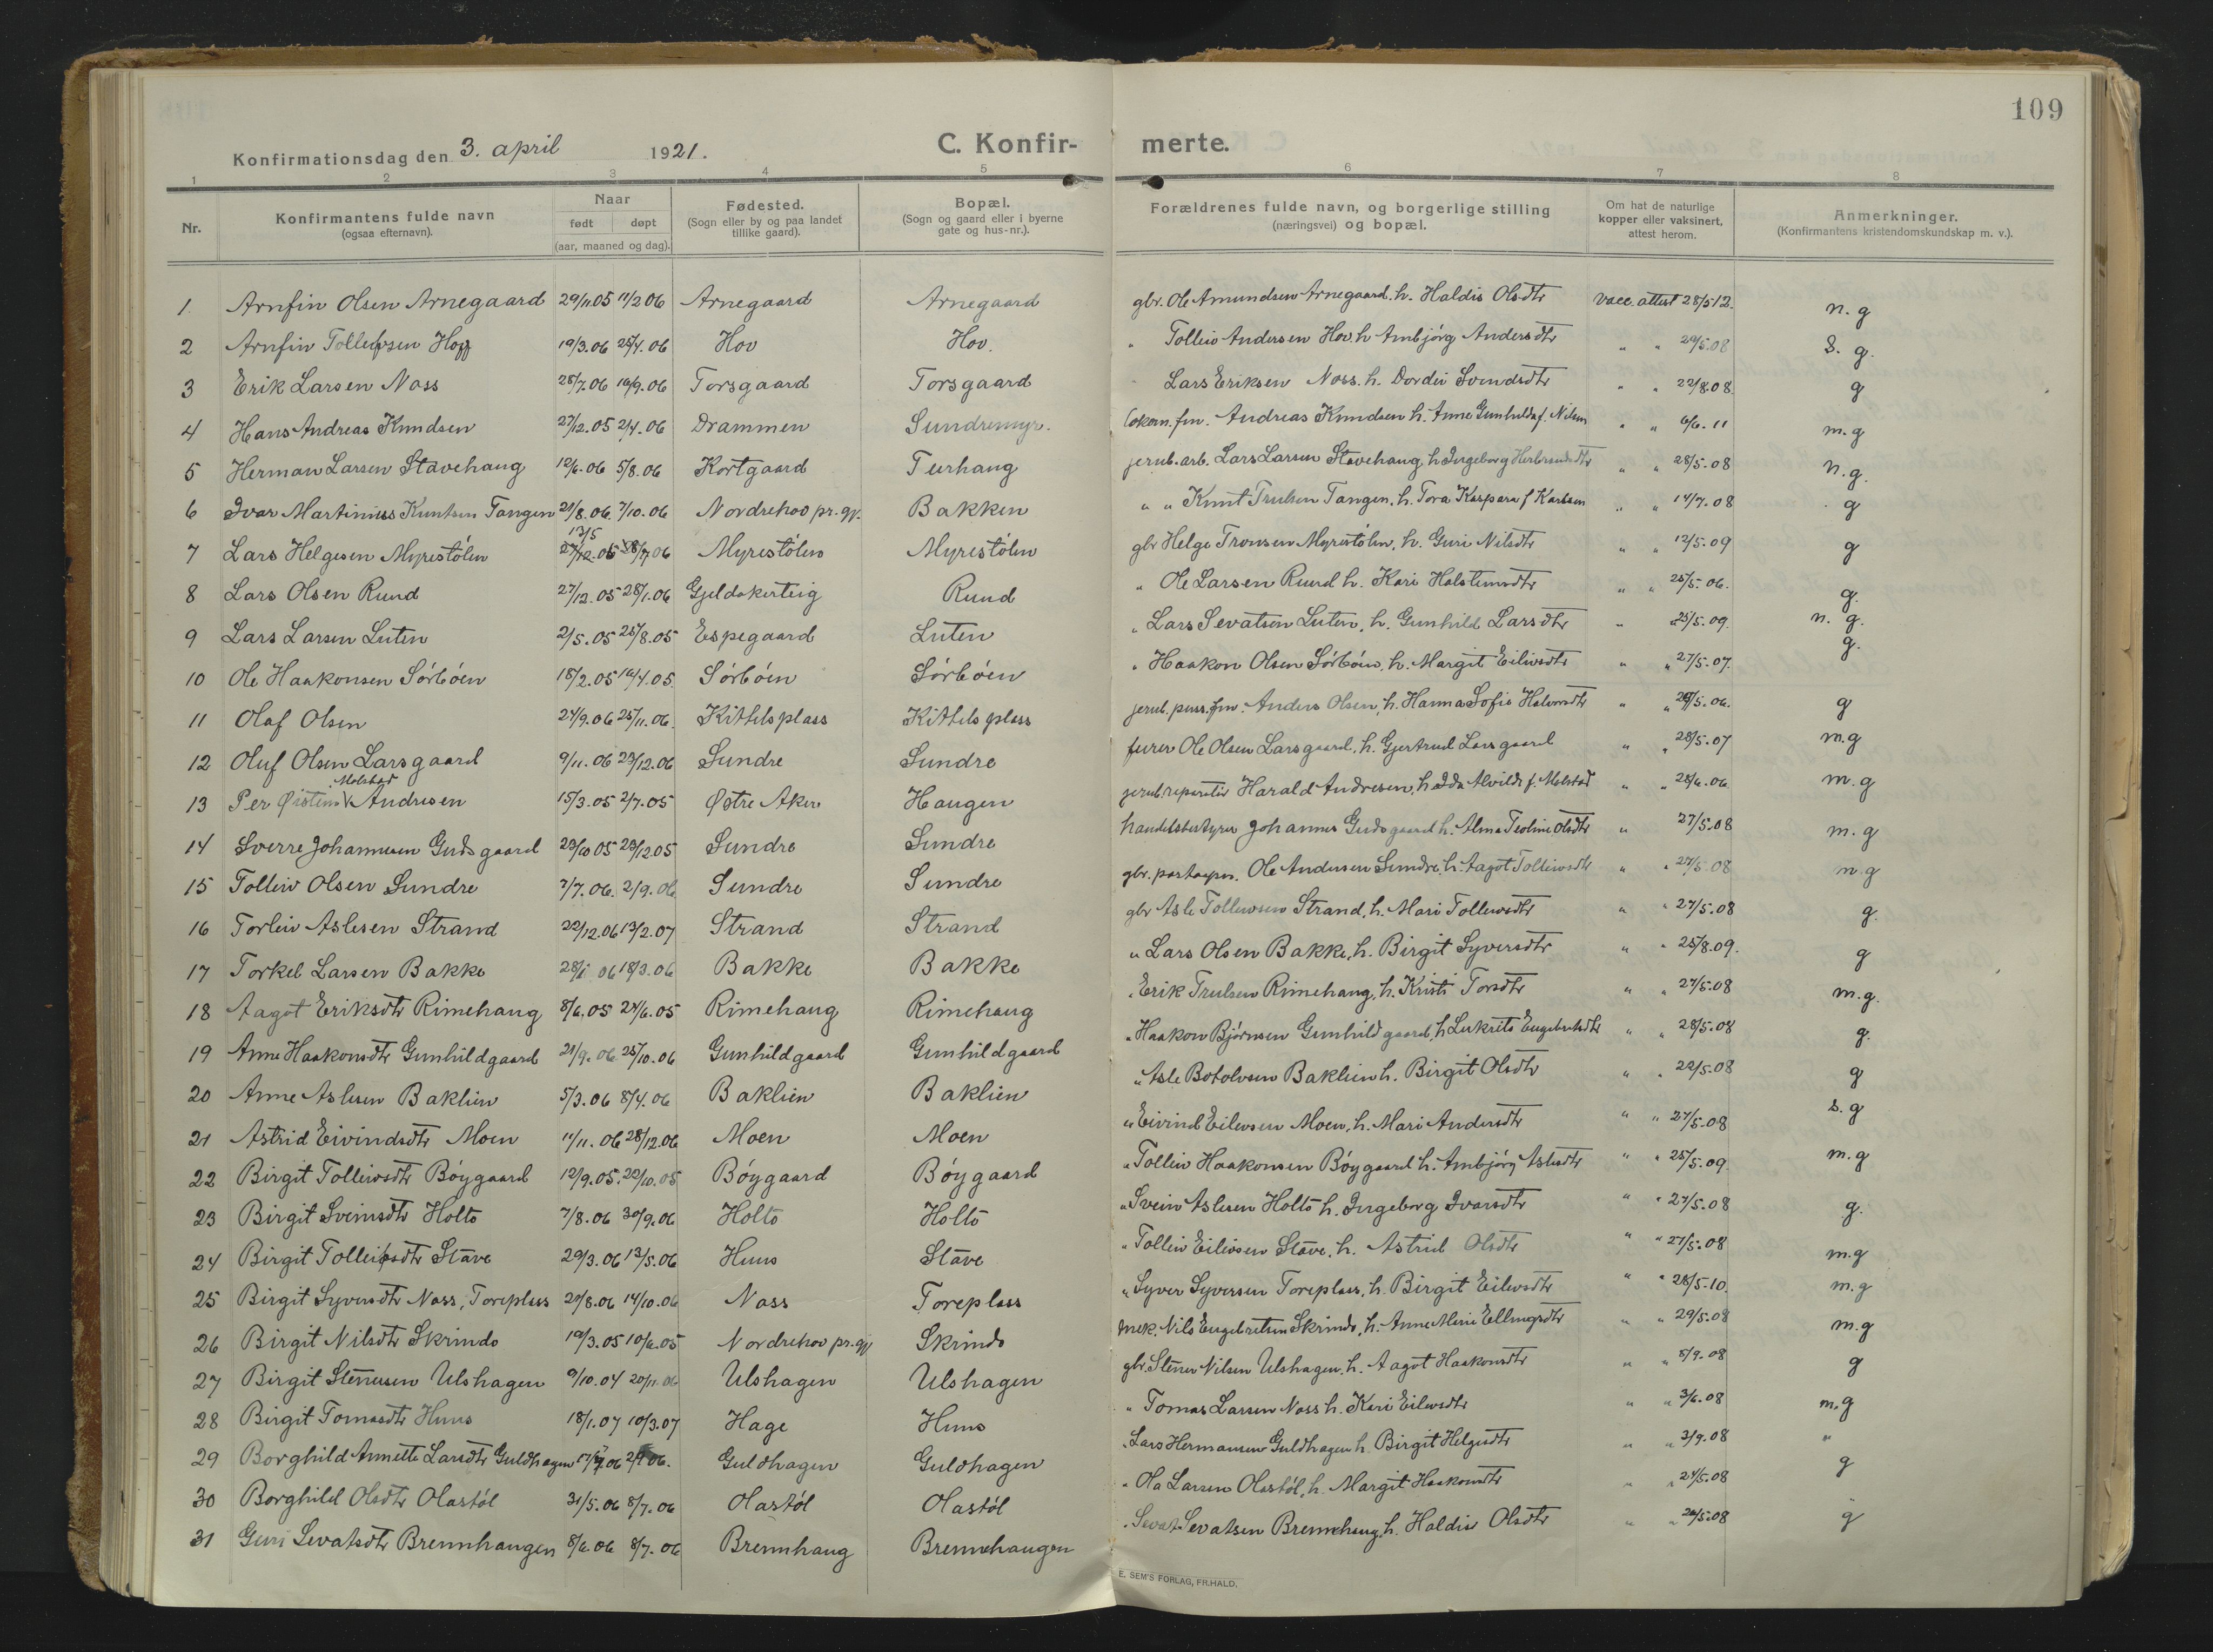 109
Konfirmationsdag den 3. april 1921.
C. Konfir- merte.
1 2 3 4 5 6 7 8
Nr.
Konfirmantens fulde navn
(ogsaa efternavn).
Naar
født døpt
(aar, maaned og dag).
Fødested.
(Sogn eller by og paa landet
tillike gaard).
Bopæl.
(Sogn og gaard eller i byerne
gate og hus-nr.).
Forældrenes fulde navn, og borgerlige stilling
(næringsvei) og bopæl.
Om hat de naturlige
kopper eller vaksinert,
attest herom.
Anmerkninger.
(Konfirmantens kristendomskundskap m. v.).
1 Arnfin Olsen Arnegaard 29/11.05 11/2 06 Arnegaard Arnegaard gbr. Ole Amundsen Arnegaard. h. Haldis Olsdtr vacc. attest 28/5 12. n. g
2 Arnfin Tollefsen Hov 19/3.06 25/4.06 Hov Hov. " Tolleiv Andersen Hov. h Ambjörg Andersdtr " " 29/5.08 s. g.
3 Erik Larsen Noss 28/7.06 16/9.06 Torsgaard Torsgaard " Lars Eriksen Noss. h. Dordei Svendsdtr " " 22/8.08 g
4 Hans Andreas Knudsen 27/12.05 2/4.06 Drammen Sundremyr. Lokom. fm. Andreas Knudsen h. Anne Gunhilda f. Nilsen " " 6/6.11 m. g
5 Herman Larsen Stavehaug 12/6.06 5/8.06 Kortgaard Turhaug jernb. arb. Lars Larsen Stavehaug, h Ingeborg Herbrandsdtr " " 28/5.08 n. g.
6 Ivar Martinius Kuntsen Tangen 21/8.06. 7/10.06 Nordrehov pr. gj. Bakken " " Knut Trulsen Tangen. h. Tora Kaspara f Karlsen " " 14/7.08 g
13/5
7 Lars Helgesen Myrestölen 27/12.05 8/7 06 Myrestölen Myrestölen gbr Helge Tronsen Myrestölen, h. Guri Nilsdtr " " 12/5.09 g
8 Lars Olsen Rund 27/12.05 28/1.06 Gjeldokerteig Rund " Ole Larsen Rund h. Kari Halstensdtr " " 25/5.06. g.
9 Lars Larsen Luten 2/5.05 25/8.05 Espegaard Luten " Lars Sevatsen Luten, h. Gunhild Larsdtr " " 25/5.09. n. g.
10 Ole Haakonsen Sörböen 18/2.05 16/4.05. Sörböen Sörböen " Haakon Olsen Sörböen, h. Margit Eilivsdtr " " 27/5.07. g.
11 Olaf Olsen 24/9.06 25/11.06. Kittilsplass Kittilsplass jernb. pens. fm. Anders Olsen, h. Hanna Sofie Halvorsdtr " " 29/5.06. g
12 Oluf Olsen Larsgaard 9/11.06 23/12.06 Sundre Sundre furer Ole Olsen Larsgaard, h. Gjertrud Larsgaard " " 28/5.07 m.g
Molstad
13 Per Øistein Andresen 15/3.05 2/7.05 Østre Aker Haugen jernb. reparatör Harald Andresen, h Ida Alvilde f. Molstad " " 28/6.06 m. g
14 Sverre Johannesen Gudsgaard 23/10 05 23/12 05 Sundre Sundre handelsbestyrer Johannes Gudsgaard h. Alma Teoline Olsdtr " 27/5.08 m. g
15 Tolleiv Olsen Sundre 7/7.06. 2/9.06 Sundre Sundre gbr. Ole Andersen Sundre, h. Aagot Tolleivsdtr " " 27/5.08 m.g
16 Torleiv Aslesen Strand 22/12.06 13/2.07 Strand Strand gbr Asle Tolleivsen Strand, h. Mari Tolleivsdtr " " 27/5.08 g.
17 Torkel Larsen Bakke 28/1 06 18/3.06 Bakke Bakke " Lars Olsen Bakke, h. Birgit Syversdtr " " 25/8.09. g
18 Aagot Eriksdtr Rimehaug 8/6.05 24/6.05 Rimehaug Rimehaug " Erik Trulsen Rimehaug, h. Kristi Torsdtr " " 27/5.08 m.g.
19 Anne Haakonsdtr Gunhildgaard 21/9.06 25/10.06 Gunhildgaard Gunhildgaard " Haakon Björnsen Gunhildgaard, h Lukrits Engebretsdtr " " 28/5.08 g.
20 Anne Aslesen Baklien 5/3.06 8/4.06 Baklien Baklien " Asle Botolvsen Baklien h. Birgit Olsdtr " " 22/5.08 g
21 Astrid Eivindsdtr Moen 11/11.06 28/12.06 Moen Moen " Eivind Eilivsen Moen, h. Mari Andersdtr " " 27/5.08 s. g
22 Birgit Tolleivsdtr Böygaard 12/9.05. 22/10.05 Böygaard Böygaard " Tolleiv Haakonsen Böygaard h. Ambjörg Aslesdtr " " 25/5.09. m.g
23 Birgit Sveinsdtr Holto 7/8.06 30/9.06 Holto Holto " Svein Aslesen Holto h. Ingeborg Ivarsdtr " " 27/5.08 g.
24 Birgit Tolleivsdtr Stave 29/3.06 13/5.06 Huus Stave " Tolleiv Eilivsen Stave, h. Astrid Olsdtr " " 27/5.08 m.g
25 Birgit Syversdtr Noss, Toreplass 27/8.06 14/10.06 Noss Toreplass " Syver Syversen Toreplass, h. Birgit Eilivsdtr " " 28/5.10. m.g
26 Birgit Nilsdtr Skrindo 19/3.05 10/6.05 Nordrehov pr.gj Skrindo mek. Nils Engebretsen Skrindo, h. Anne Marie Ellingsdtr " " 29/5.08 m.g
27 Birgit Stenersen Ulshagen 9/10.04 20/11.06 Ulshagen Ulshagen gbr. Stener Nilsen Ulshagen, h. Aagot Haakonsdtr " " 8/9.08 g
28 Birgit Tomasdtr Huus 18/1.07 10/3.07 Hage Huus " Tomas Larsen Noss h. Kari Eilivsdtr " " 3/6.08 m.g
29 Borghild Annette Larsdtr Guldhagen 17/7 06 2/9 06. Guldhagen Guldhagen " Lars Hermansen Guldhagen h. Birgit Helgesdtr " " 3/9.08 "
30 Borghild Olsdtr Olastöl 31/5.06 8/7.06 Olastöl Olastöl " Ola Larsen Olastöl, h. Margit Haakonsdtr " " 24/5.08 g
31 Guri Sevatsdtr Brennhaugen 8/6.06 8/7.06 Brennhaug Brennehaugen " Sevat Sevatsen Brennehaug, h. Haldis Olsdtr " " 26/5.08 g
E. SEM'S FORLAG, FR.HALD.